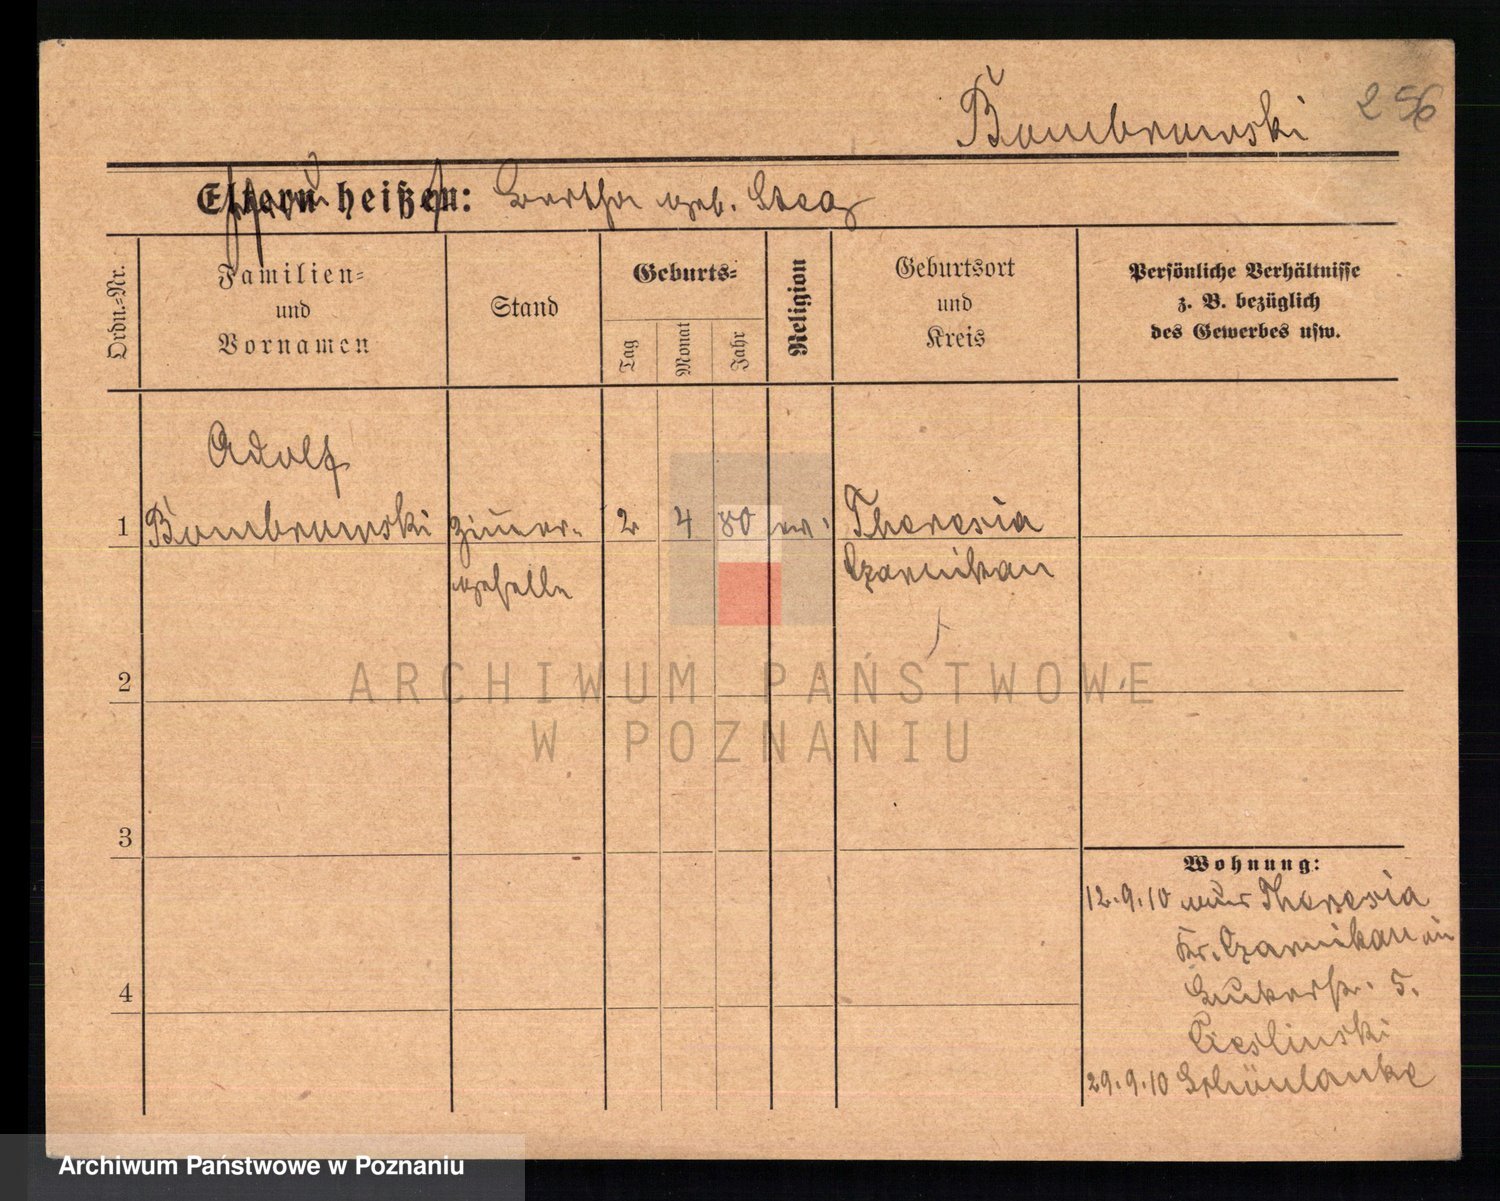 Bombrowski 256
Eltern heißen: Bertha geb. Steg
Ordn.-Nr.
Familien-
und
Vornamen
Stand
Geburts-
Tag
Monat
Jahr
Religion
Geburtsort
und
Kreis
Persönliche Verhältnisse
z. B. bezüglich
des Gewerbes usw.
Adolf
1 Bombrowski Zimer- 2 4 80 ev. Theresia
geselle Czarnikau
2
3
4
Wohnung:
12.9.10 aus Theresia
Kr. Czarnikau in
5.
Cieslinski
29.9.10 Schönlanke
ARCHIWUM PAŃSTWOWE
W POZNANIU
Archiwum Państwowe w Poznaniu